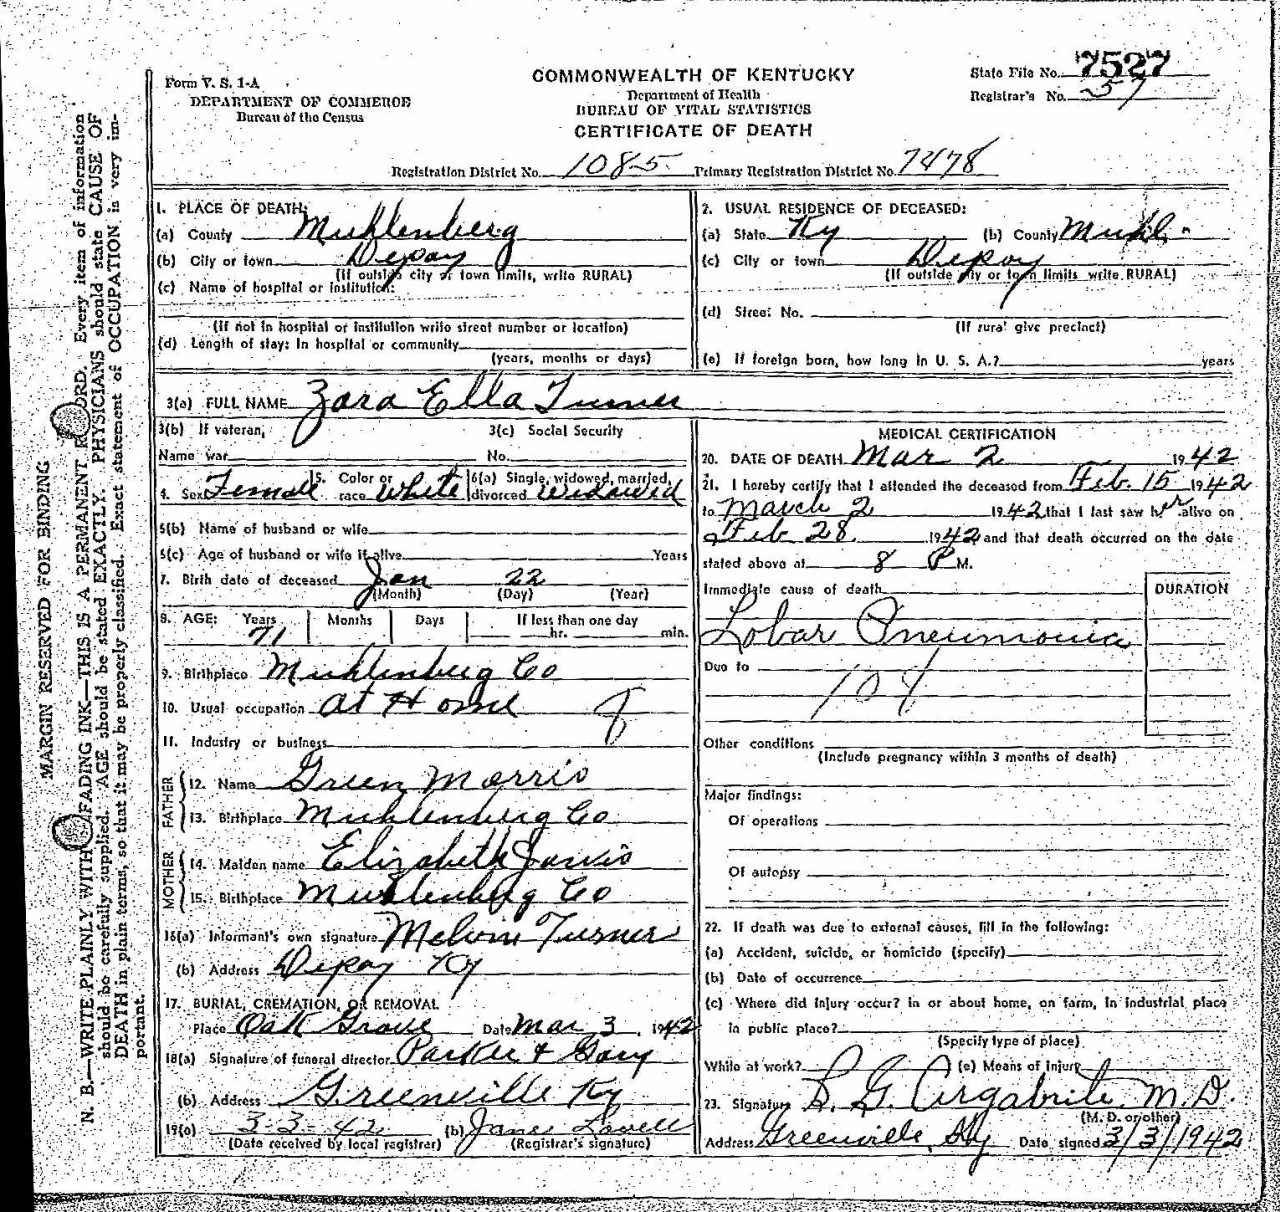 Form V. S. 1-A
DEPARTMENT OF COMMERCE
Bureau of the Census
COMMONWEALTH OF KENTUCKY
Department of Health
BUREAU OF VITAL STATISTICS
CERTIFICATE OF DEATH
State File No. 7527
Registrar's No. 57
Registration District No. 1085 Primary Registration District No. 7478
1. PLACE OF DEATH:
(a) County Muhlenberg
(b) City or town Depoy
(If outside city or town limits, write RURAL)
(c) Name of hospital or institution:
(If not in hospital or institution write street number or location)
(d) Length of stay: In hospital or community
(years, months or days)
2. USUAL RESIDENCE OF DECEASED:
(a) State Ky (b) County Muhl.
(c) City or town Depoy
(If outside city or town limits write RURAL)
(d) Street No.
(If rural give precinct)
(e) If foreign born, how long in U. S. A.? years
3(a) FULL NAME Zora Ella Turner
3(b) If veteran, 3(c) Social Security
Name war No.
4. Sex Female 5. Color or race White 6(a) Single, widowed, married, divorced Widowed
6(b) Name of husband or wife
6(c) Age of husband or wife if alive Years
7. Birth date of deceased Jan 22
(Month) (Day) (Year)
8. AGE: Years Months Days If less than one day
71 hr. min.
9. Birthplace Muhlenberg Co
10. Usual occupation at Home
11. Industry or business
FATHER
12. Name Green Morris
13. Birthplace Muhlenberg Co
MOTHER
14. Maiden name Elizabeth Jarvis
15. Birthplace Muhlenberg Co
16(a) Informant's own signature Melvin Turner
(b) Address Depoy Ky
17. BURIAL, CREMATION, OR REMOVAL
Place Oak Grove Date Mar 3, 1942
18(a) Signature of funeral director Parker & Gary
(b) Address Greenville Ky
19(a) 3-3-42 (b) James Lovell
(Date received by local registrar) (Registrar's signature)
MEDICAL CERTIFICATION
20. DATE OF DEATH Mar 2 1942
21. I hereby certify that I attended the deceased from Feb. 15, 1942
to March 2 1942 that I last saw her alive on
Feb 28, 1942 and that death occurred on the date
stated above at 8 P M.
Immediate cause of death
DURATION
Lobar Pneumonia
Due to
Other conditions
(Include pregnancy within 3 months of death)
Major findings:
Of operations
Of autopsy
22. If death was due to external causes, fill in the following:
(a) Accident, suicide, or homicide (specify)
(b) Date of occurrence
(c) Where did injury occur? in or about home, on farm, in industrial place
in public place?
(Specify type of place)
While at work? (e) Means of injury
23. Signature L. G. Argabrite, M. D.
(M. D. or other)
Address Greenville, Ky Date signed 3/3/1942
MARGIN RESERVED FOR BINDING
N. B.—WRITE PLAINLY WITH FADING INK—THIS IS A PERMANENT RECORD. Every item of information
should be carefully supplied. AGE should be stated EXACTLY. PHYSICIANS should state CAUSE OF
DEATH in plain terms, so that it may be properly classified. Exact statement of OCCUPATION is very im-
portant.